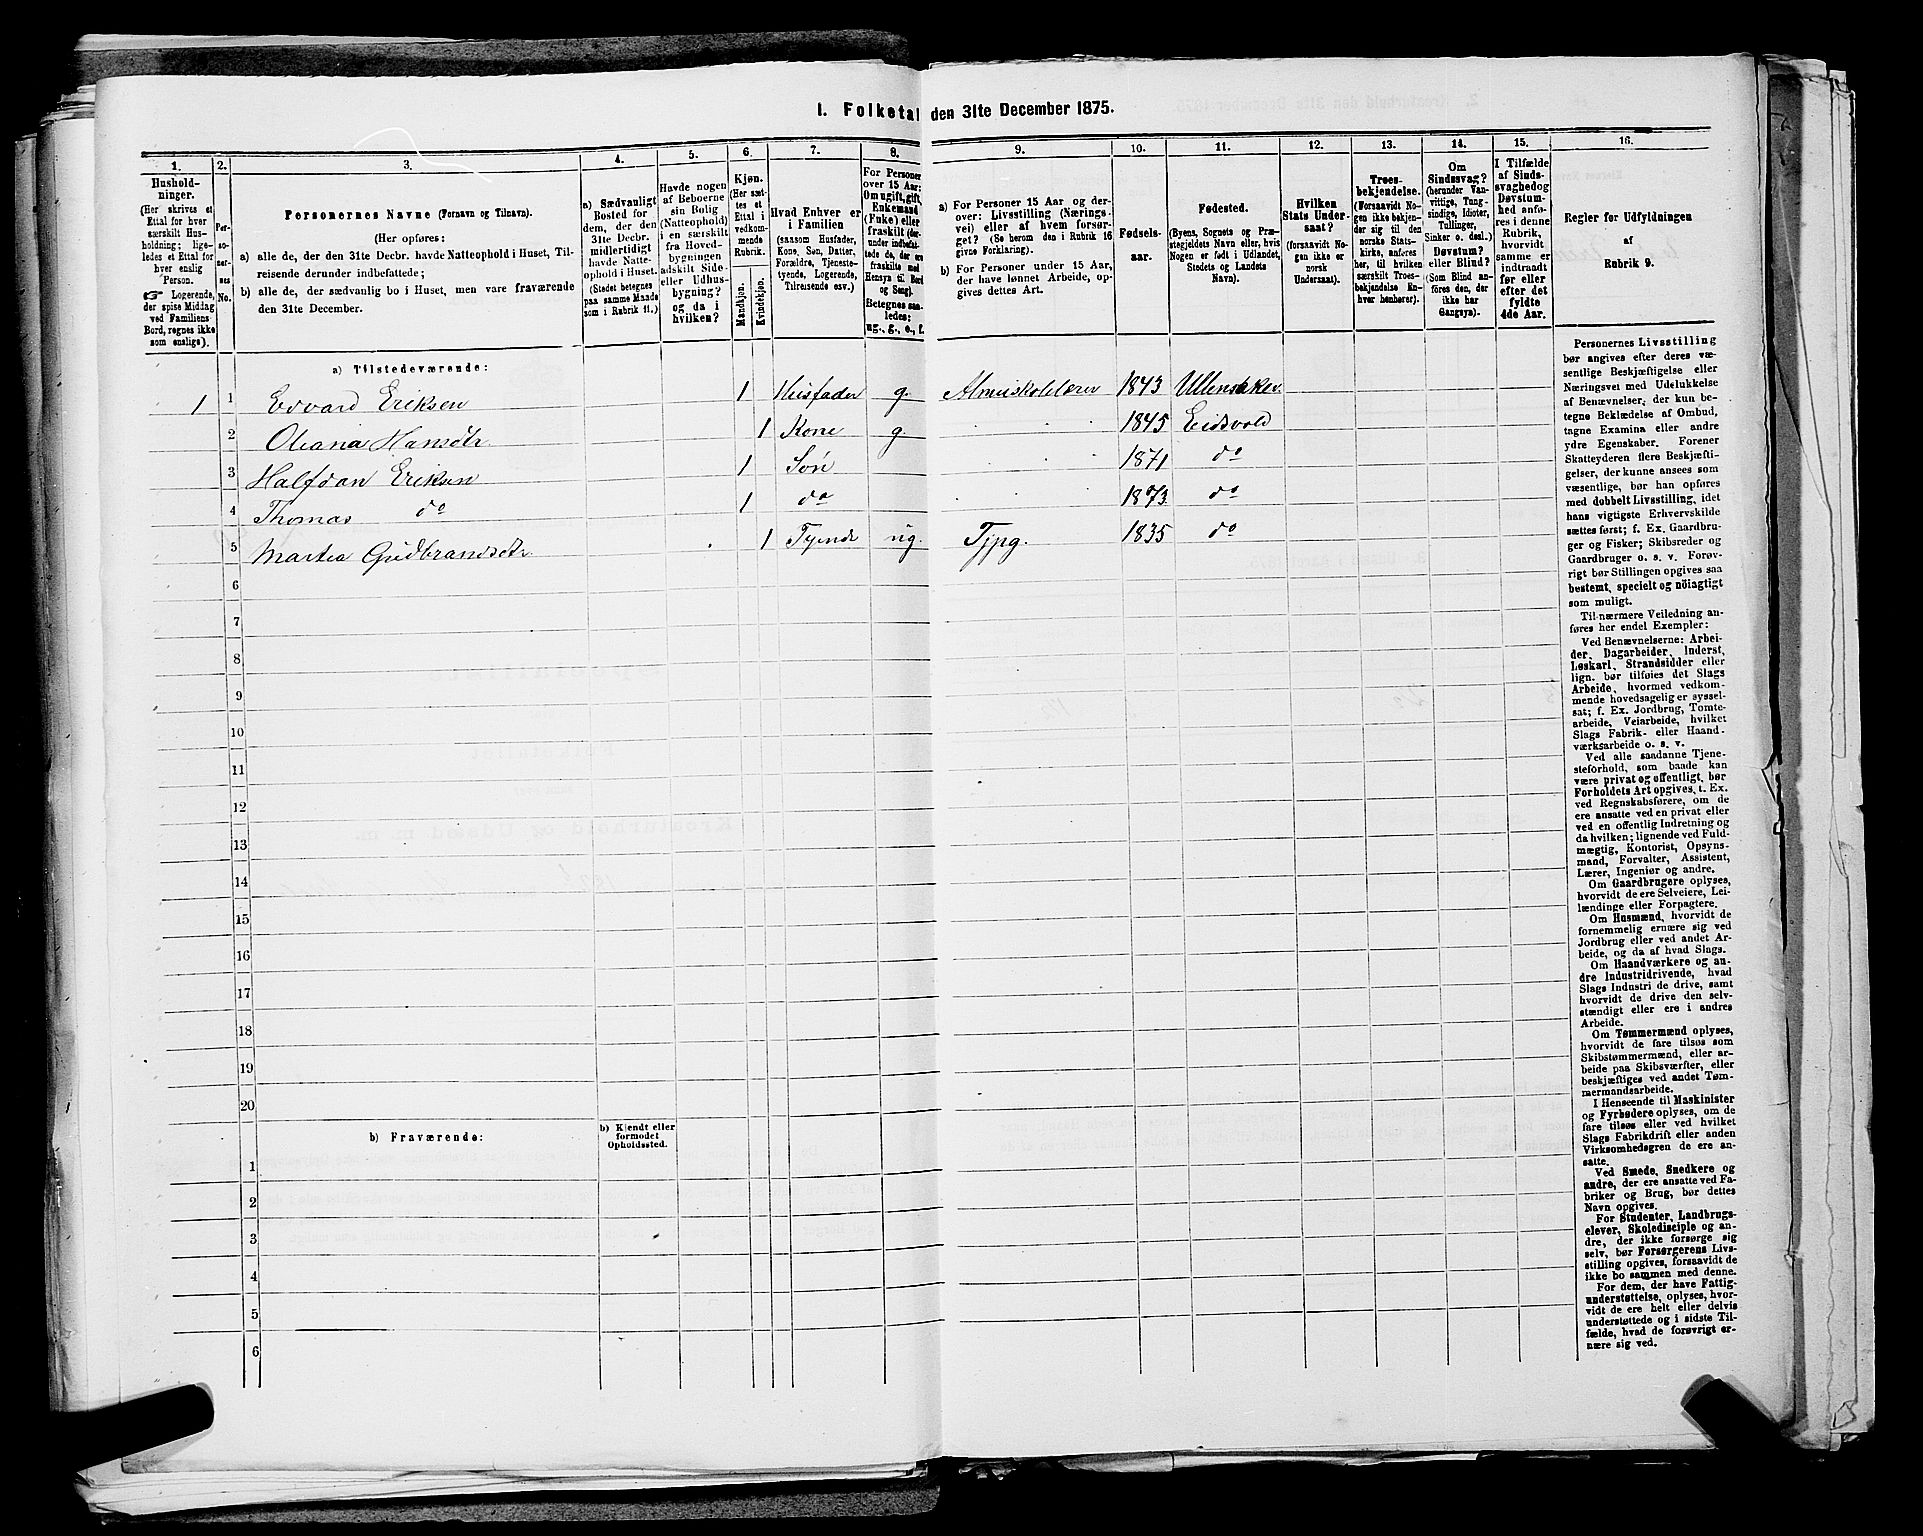 1. Folketal den 31te December 1875.
1.
Hushold-
ninger.
(Her skrives et
Ettal for hver
særskilt Hus-
holdning; lige-
ledes et Ettal for
hver enslig
Person.
☞ Logerende,
der spise Middag
ved Familiens
Bord, regnes ikke
som enslige).
2.
Per-
so-
ner-
nes
No.
3.
Personernes Navne (Fornavn og Tilnavn).
(Her opføres:
a) alle de, der den 31te Decbr. havde Natteophold i Huset, Til-
reisende derunder indbefattede;
b) alle de, der sædvanlig bo i Huset, men vare fraværende
den 31te December.
4.
a) Sædvanligt
Bosted for
dem, der den
31te Decbr.
midlertidigt
havde Natte-
ophold i Huset.
(Stedet betegnes
paa samme Maade
som i Rubrik 11.)
5.
Havde nogen
af Beboerne
sin Bolig
(Natteophold)
i en særskilt
fra Hoved-
bygningen
adskilt Side-
eller Udhus-
bygning?
og da i
hvilken?
6.
Kjøn.
(Her sæt-
tes et
Ettal i
vedkom-
mende
Rubrik.
Mandkjøn.
Kvindekjøn.
7.
Hvad Enhver er
i Familien
(saasom Husfader,
Kone, Søn, Datter,
Forældre, Tjeneste-
tyende, Logerende,
Tilreisende osv.)
8.
For Personer
over 15 Aar:
Om ugift, gift,
Enkemand
(Enke) eller
fraskilt (der-
under indbefat-
tede de, der ere
fraskilte med
Hensyn til Bord
og Seng).
Betegnes saa-
ledes:
ug., g., e., f.
9.
a) For Personer 15 Aar og der-
over: Livsstilling (Nærings-
vei) eller af hvem forsør-
get? (Se herom den i Rubrik 16
givne Forklaring).
b) For Personer under 15 Aar,
der have lønnet Arbeide, op-
gives dettes Art.
10.
Fødsels-
aar.
11.
Fødested.
(Byens, Sognets og Præ-
stegjeldets Navn eller, hvis
Nogen er født i Udlandet,
Stedets og Landets
Navn).
12.
Hvilken
Stats Under-
saat?
(forsaavidt No-
gen ikke er
norsk
Undersaat).
13.
Troes-
bekjendelse.
(Forsaavidt No-
gen ikke bekjen-
der sig til den
norske Stats-
kirke, anføres
her, til hvilken
særskilt Troes-
bekjendelse En-
hver henhører).
14.
Om
Sindssvag?
(herunder Van-
vittige, Tung-
sindige, Idioter,
Tullinger,
Sinker o. desl.)
Døvstum?
eller Blind?
(Som Blind an-
føres den, der
ikke har
Gangsyn).
15.
I Tilfælde
af Sinds-
svaghed og
Døvstum-
hed anfø-
res i denne
Rubrik,
hvorvidt
samme er
indtraadt
før eller
efter det
fyldte
4de Aar.
16.
Regler for Udfyldningen
af
Rubrik 9.
a) Tilstedeværende:
1 1 Edvard Eriksen 1 Husfader g. Almuskolelærer 1843 Ullensaker
2 Oleana Hansdtr 1 Kone g. 1845 Eidsvold
3 Halfdan Eriksen 1 Søn 1871 do
4 Thomas do 1 do 1873 do
5 Marthea Gudbrandsdtr 1 Tyende ug. Tjpg. 1835 do
6
7
8
9
10
11
12
13
14
15
16
17
18
19
20
b) Fraværende:
b) Kjendt eller
formodet
Opholdssted.
1
2
3
4
5
6
Personernes Livsstilling
bør angives efter deres væ-
sentlige Beskjæftigelse eller
Næringsvei med Udelukkelse
af Benævnelser, der kun be-
tegne Beklædelse af Ombud,
tagne Examina eller andre
ydre Egenskaber. Forener
Skatteyderen flere Beskjæfti-
gelser, der kunne ansees som
væsentlige, bør han opføres
med dobbelt Livsstilling, idet
hans vigtigste Erhvervskilde
sættes først; f. Ex. Gaardbru-
ger og Fisker; Skibsreder og
Gaardbruger o. s. v. Forøv-
rigt bør Stillingen opgives saa
bestemt, specielt og nöiagtigt
som muligt.
Til nærmere Veiledning an-
føres her endel Exempler:
Ved Benævnelserne: Arbei-
der, Dagarbeider, Inderst,
Løskarl, Strandsidder eller
lign. bør tilføies det Slags
Arbeide, hvormed vedkom-
mende hovedsagelig er syssel-
sat; f. Ex. Jordbrug, Tomte-
arbeide, Veiarbeide, hvilket
Slags Fabrik- eller Haand-
værksarbeide o. s. v.
Ved alle saadanne Tjene-
steforhold, som baade kan
være privat og offentligt, bør
Forholdets Art opgives, t. Ex.
ved Regnskabsførere, om de
ere ansatte ved en privat eller
ved en offentlig Indretning og
da hvilken; lignende ved Fuld-
mægtig, Kontorist, Opsyns-
mand, Forvalter, Assistent,
Lærer, Ingeniør og andre.
Om Gaardbrugere oplyses,
hvorvidt de ere Selveiere, Lei-
lændinge eller Forpagtere.
Om Husmænd, hvorvidt de
fornemmelig ernære sig ved
Jordbrug eller ved andet Ar-
beide, og da af hvad Slags.
Om Haandværkere og an-
dre Industridrivende, hvad
Slags Industri de drive, samt
hvorvidt de drive den selv-
stændigt eller ere i andres
Arbeide.
Om Tømmermænd oplyses,
hvorvidt de fare tilsøs som
Skibstømmermænd, eller ar-
beide paa Skibsværfter, eller
beskjæftiges ved andet Tøm-
mermandsarbeide.
I Henseende til Maskinister
og Fyrbødere oplyses, om de
fare tilsøs eller ved hvilket
Slags Fabrikdrift eller anden
Virksomhedsgren de ere an-
satte.
Ved Smede, Snedkere og
andre, der ere ansatte ved Fa-
briker og Brug, bør dettes
Navn opgives.
For Studenter, Landbrugs-
elever, Skoledisciple og an-
dre, der ikke forsørge sig
selv, bør Forsørgerens Livs-
stilling opgives, forsaavidt de
ikke bo sammen med denne.
For dem, der have Fattig-
understøttelse, oplyses, hvor-
vidt de ere helt eller delvis
understøttede og i sidste Til-
fælde, hvad de forøvrigt er-
nære sig ved.